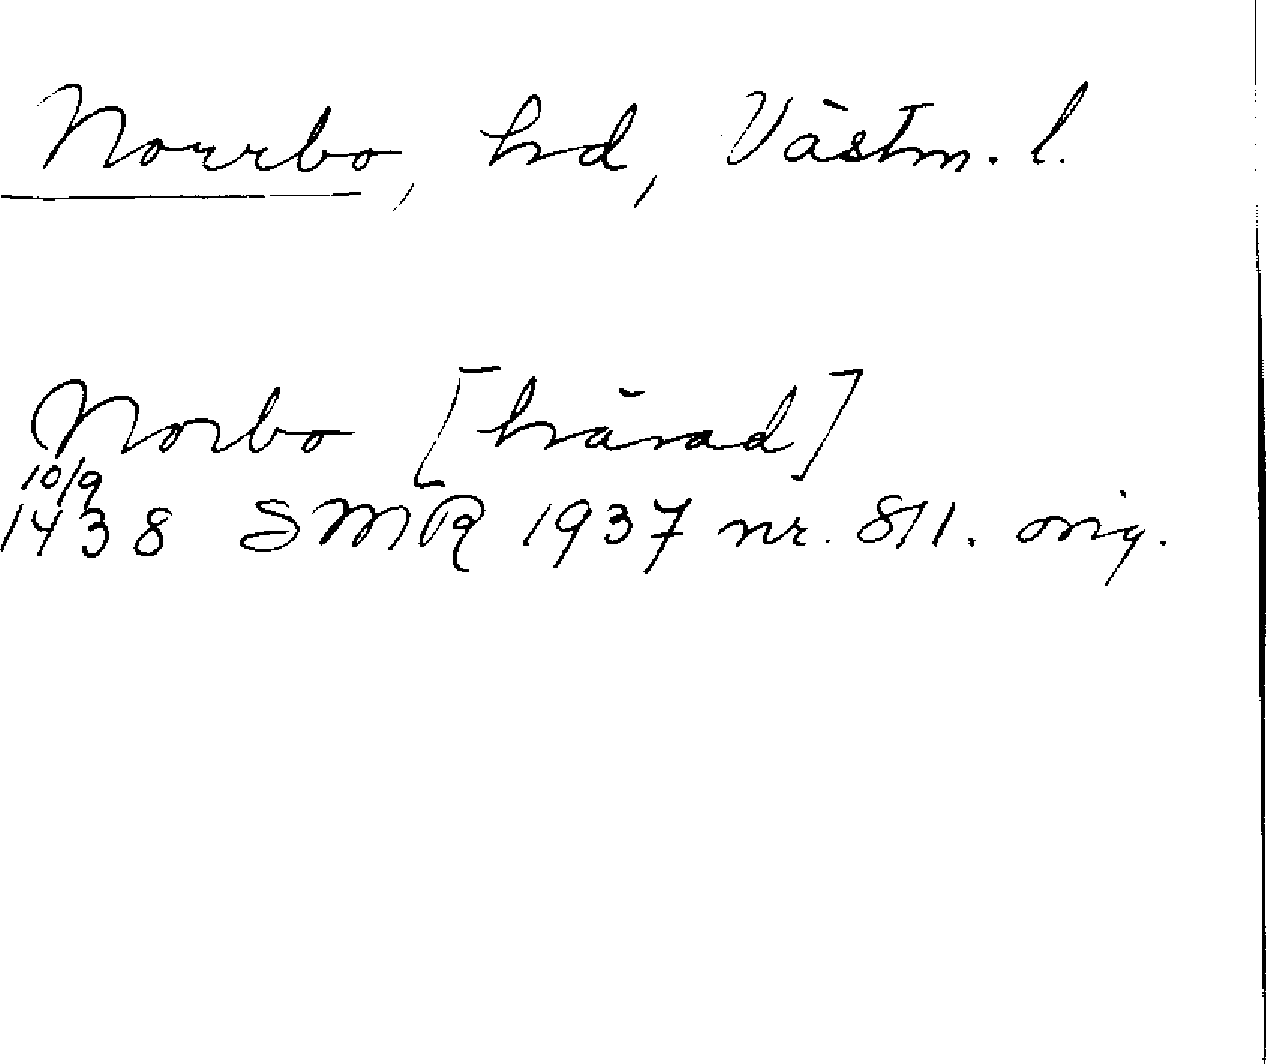 Norrbo, hd, Västm. l.
Norbo [härad]
10/9
1438 SMR 1937 nr. 811. orig.